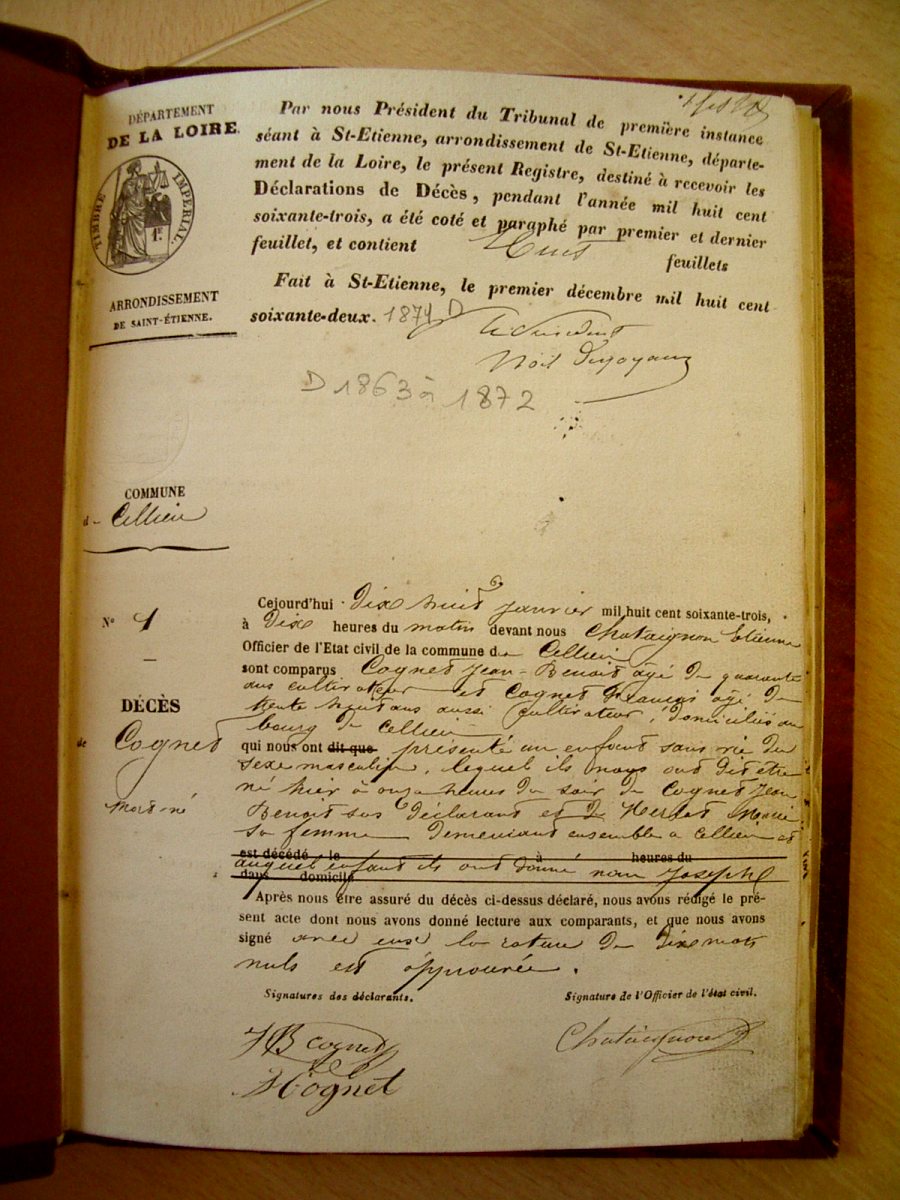 DÉPARTEMENT
DE LA LOIRE.
TIMBRE IMPÉRIAL.
1F.
ARRONDISSEMENT
DE SAINT-ÉTIENNE.
Par nous Président du Tribunal de première instance
séant à St-Etienne, arrondissement de St-Etienne, départe-
ment de la Loire, le présent Registre, destiné à recevoir les
Déclarations de Décès, pendant l'année mil huit cent
soixante-trois, a été coté et paraphé par premier et dernier
feuillet, et contient huit feuillets
Fait à St-Etienne, le premier décembre mil huit cent
soixante-deux. 1874 D
Le Président
D 1863 à 1872
COMMUNE
d- Cellieu
N° 1
DÉCÈS
de Cognet
mort-né
Cejourd'hui dix huit janvier mil huit cent soixante-trois,
à Dix heures du matin devant nous Chataignon Etienne
Officier de l'Etat civil de la commune de Cellieu
sont comparus Cognet Jean-Benoit âgé de quarante
ans cultivateur et Cognet François âgé de
trente huit ans aussi cultivateur, domiciliés au
bourg de Cellieu
qui nous ont dit que présenté un enfant sans vie du
sexe masculin, lequel ils nous ont dit être
né hier à onze heures du soir de Cognet Jean
Benoit sus déclarant et de Marie
sa femme demeurant ensemble a Cellieu et
est décédé le à heures du
auquel enfant ils ont donné nom Joseph
dans domicile
Après nous être assuré du décès ci-dessus déclaré, nous avons rédigé le pré-
sent acte dont nous avons donné lecture aux comparants, et que nous avons
signé avec eux la rature de dix mots
nuls est approuvée.
Signatures des déclarants.
Signature de l'Officier de l'état civil.
JB Cognet
Chataignon
Cognet